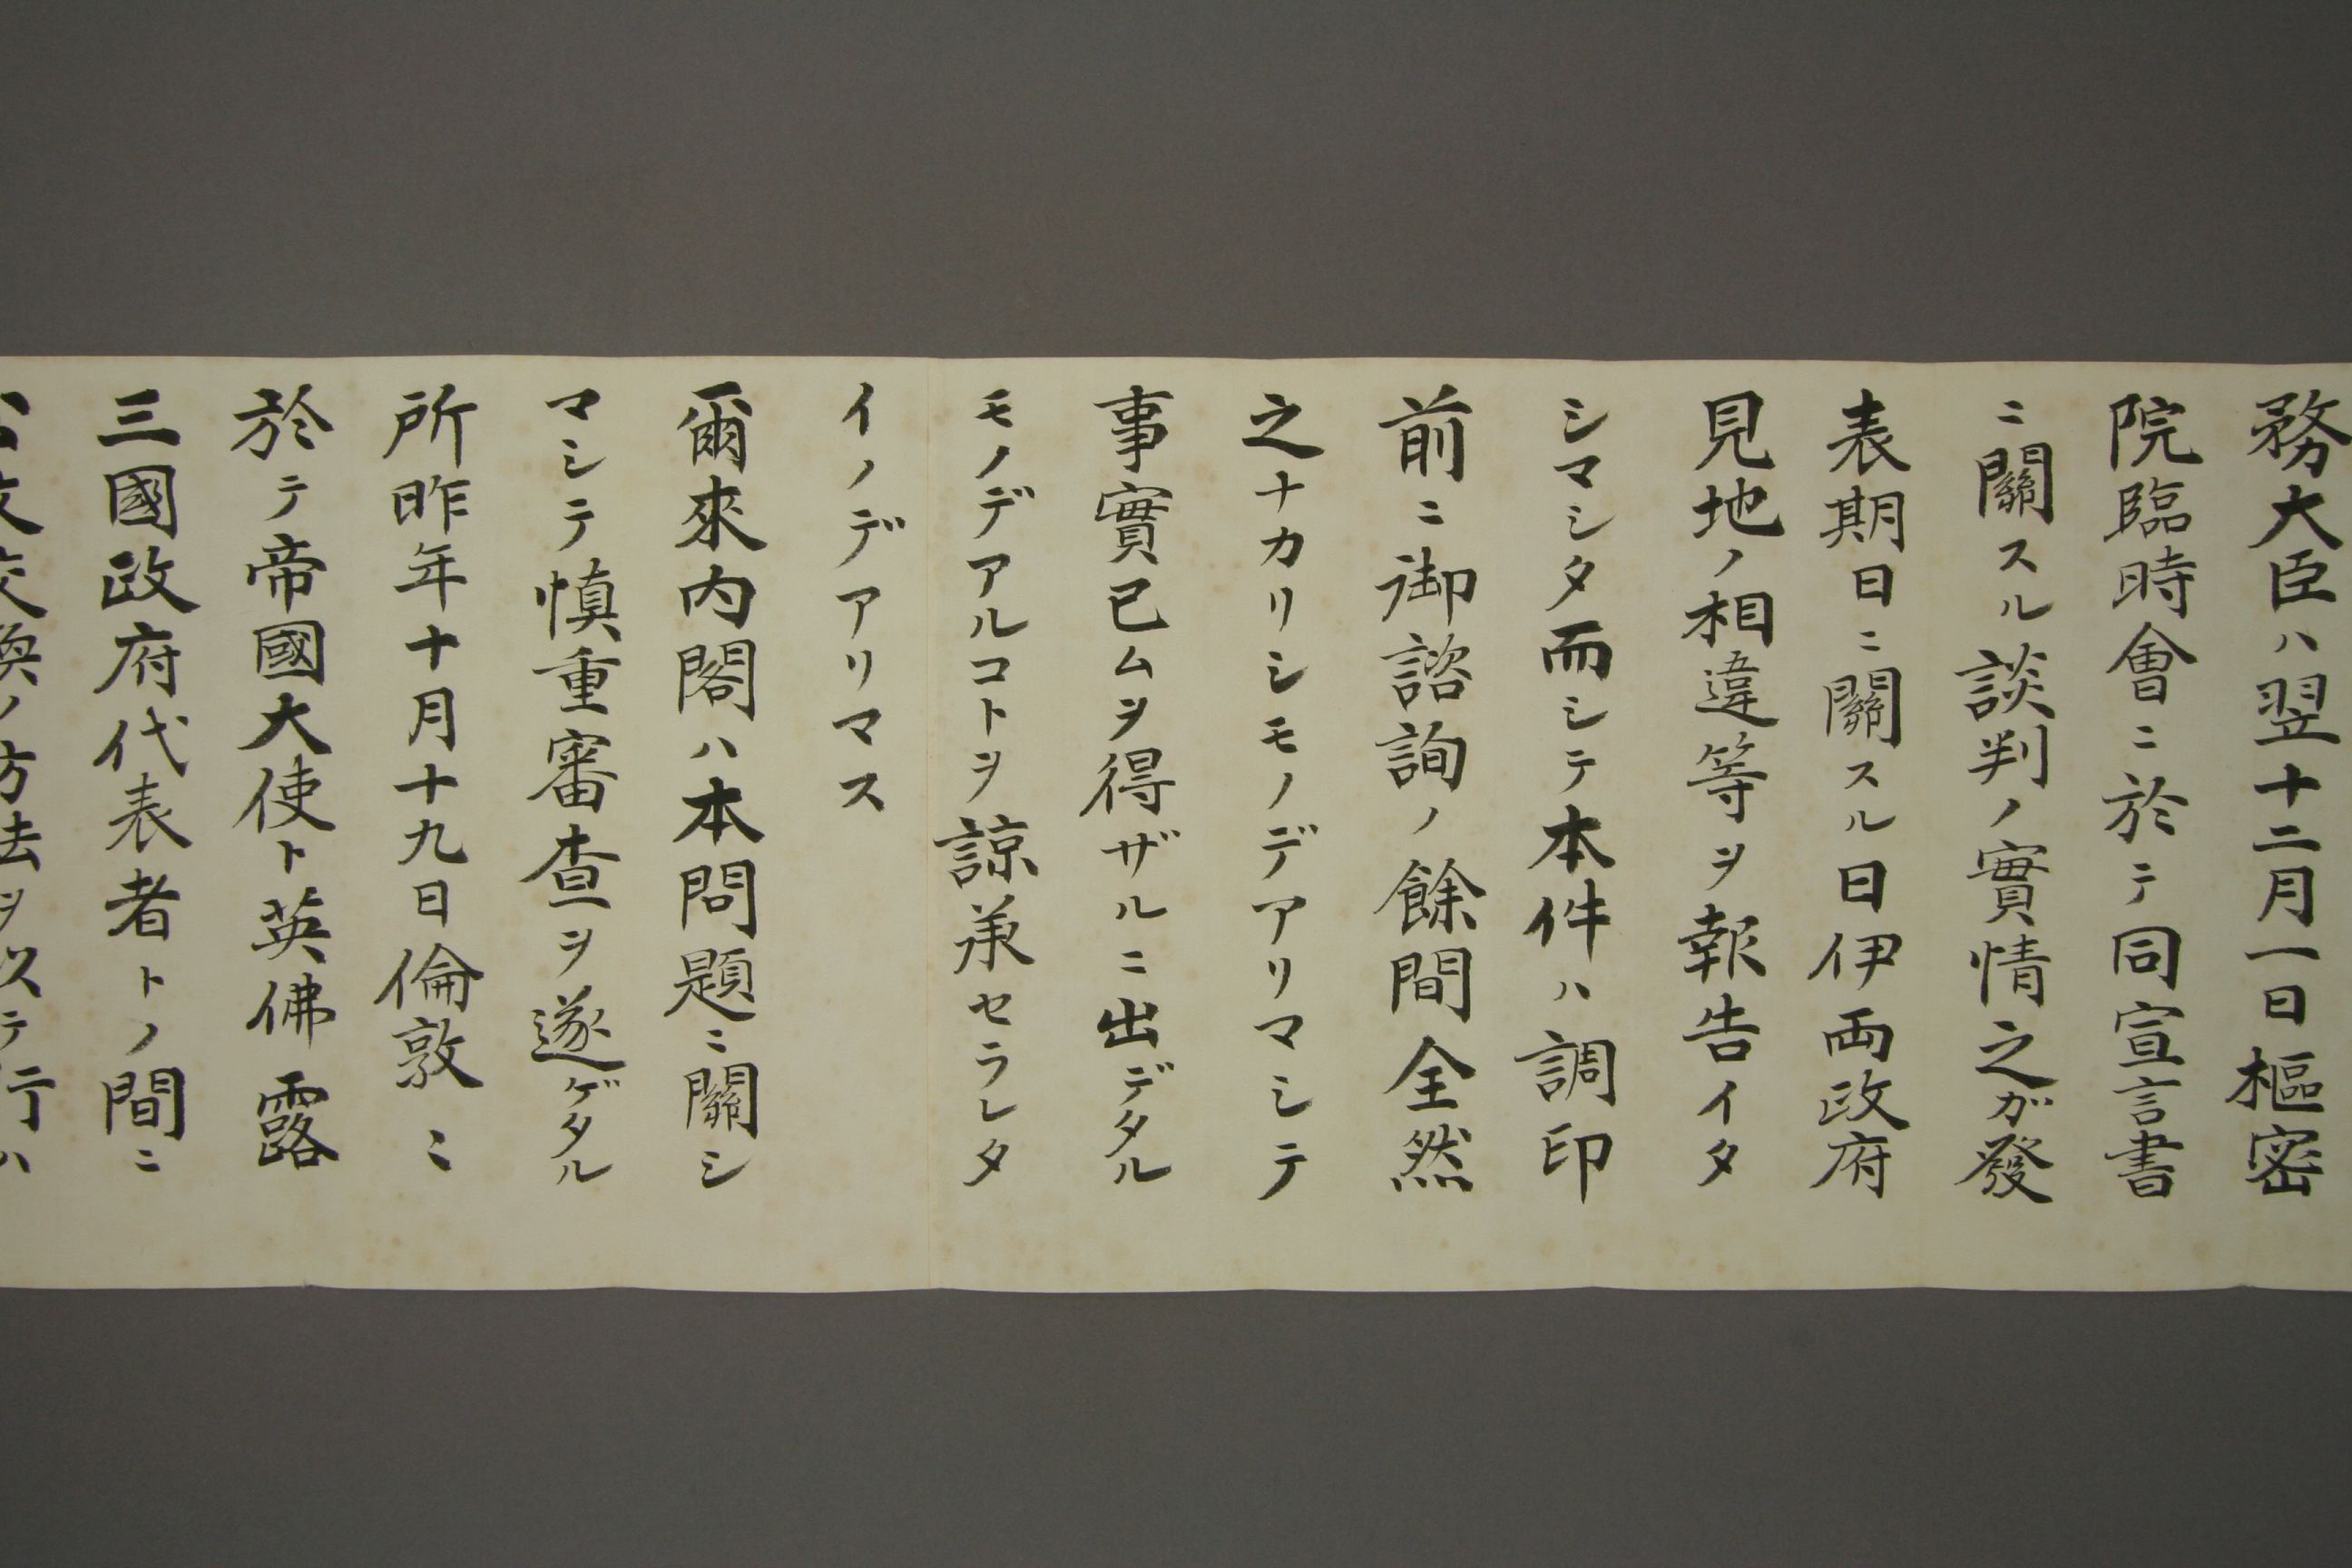 務大臣ハ翌十二月一日樞密
院臨時會ニ於テ同宣言書
ニ關スル談判ノ實情之ガ發
表期日ニ關スル日伊両政府
見地ノ相違等ヲ報告イタ
シマシタ而シテ本件ハ調印
前ニ御諮詢ノ餘間全然
之ナカリシモノデアリマシテ
事實已ムヲ得ザルニ出デタル
モノデアルコトヲ諒承セラレタ
イノデアリマス
爾來內閣ハ本問題ニ關シ
マシテ慎重審査ヲ遂ゲタル
所昨年十月十九日倫敦ニ
於テ帝國大使ト英佛露
三國政府代表者トノ間ニ
公文交換ノ方法ヲ以テ行ハ